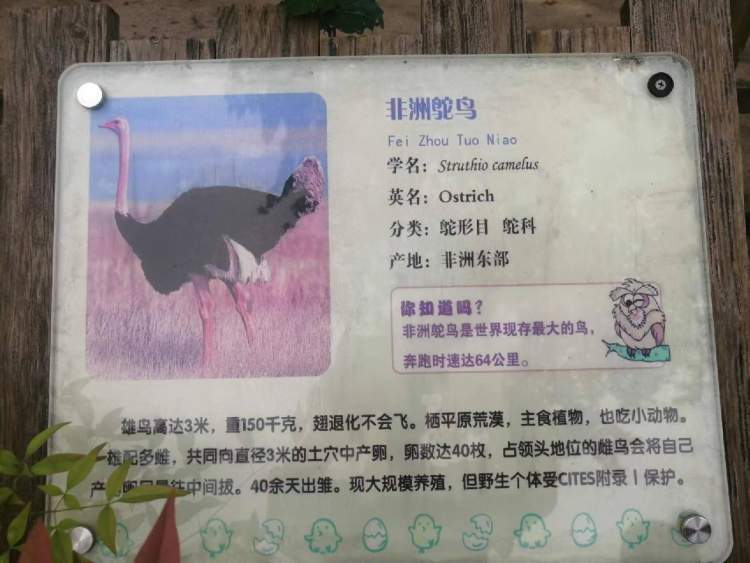 非洲鸵鸟
Fei Zhou Tuo Niao
学名：Struthio camelus
英名：Ostrich
分类：鸵形目 鸵科
产地：非洲东部
你知道吗？
非洲鸵鸟是世界现存最大的鸟，
奔跑时速达64公里。
雄鸟高达3米，重150千克，翅退化不会飞。栖平原荒漠，主食植物，也吃小动物。
一雄配多雌，共同向直径3米的土穴中产卵，卵数达40枚，占领头地位的雌鸟会将自己
产的卵尽量往中间拔。40余天出雏。现大规模养殖，但野生个体受CITES附录Ⅰ保护。